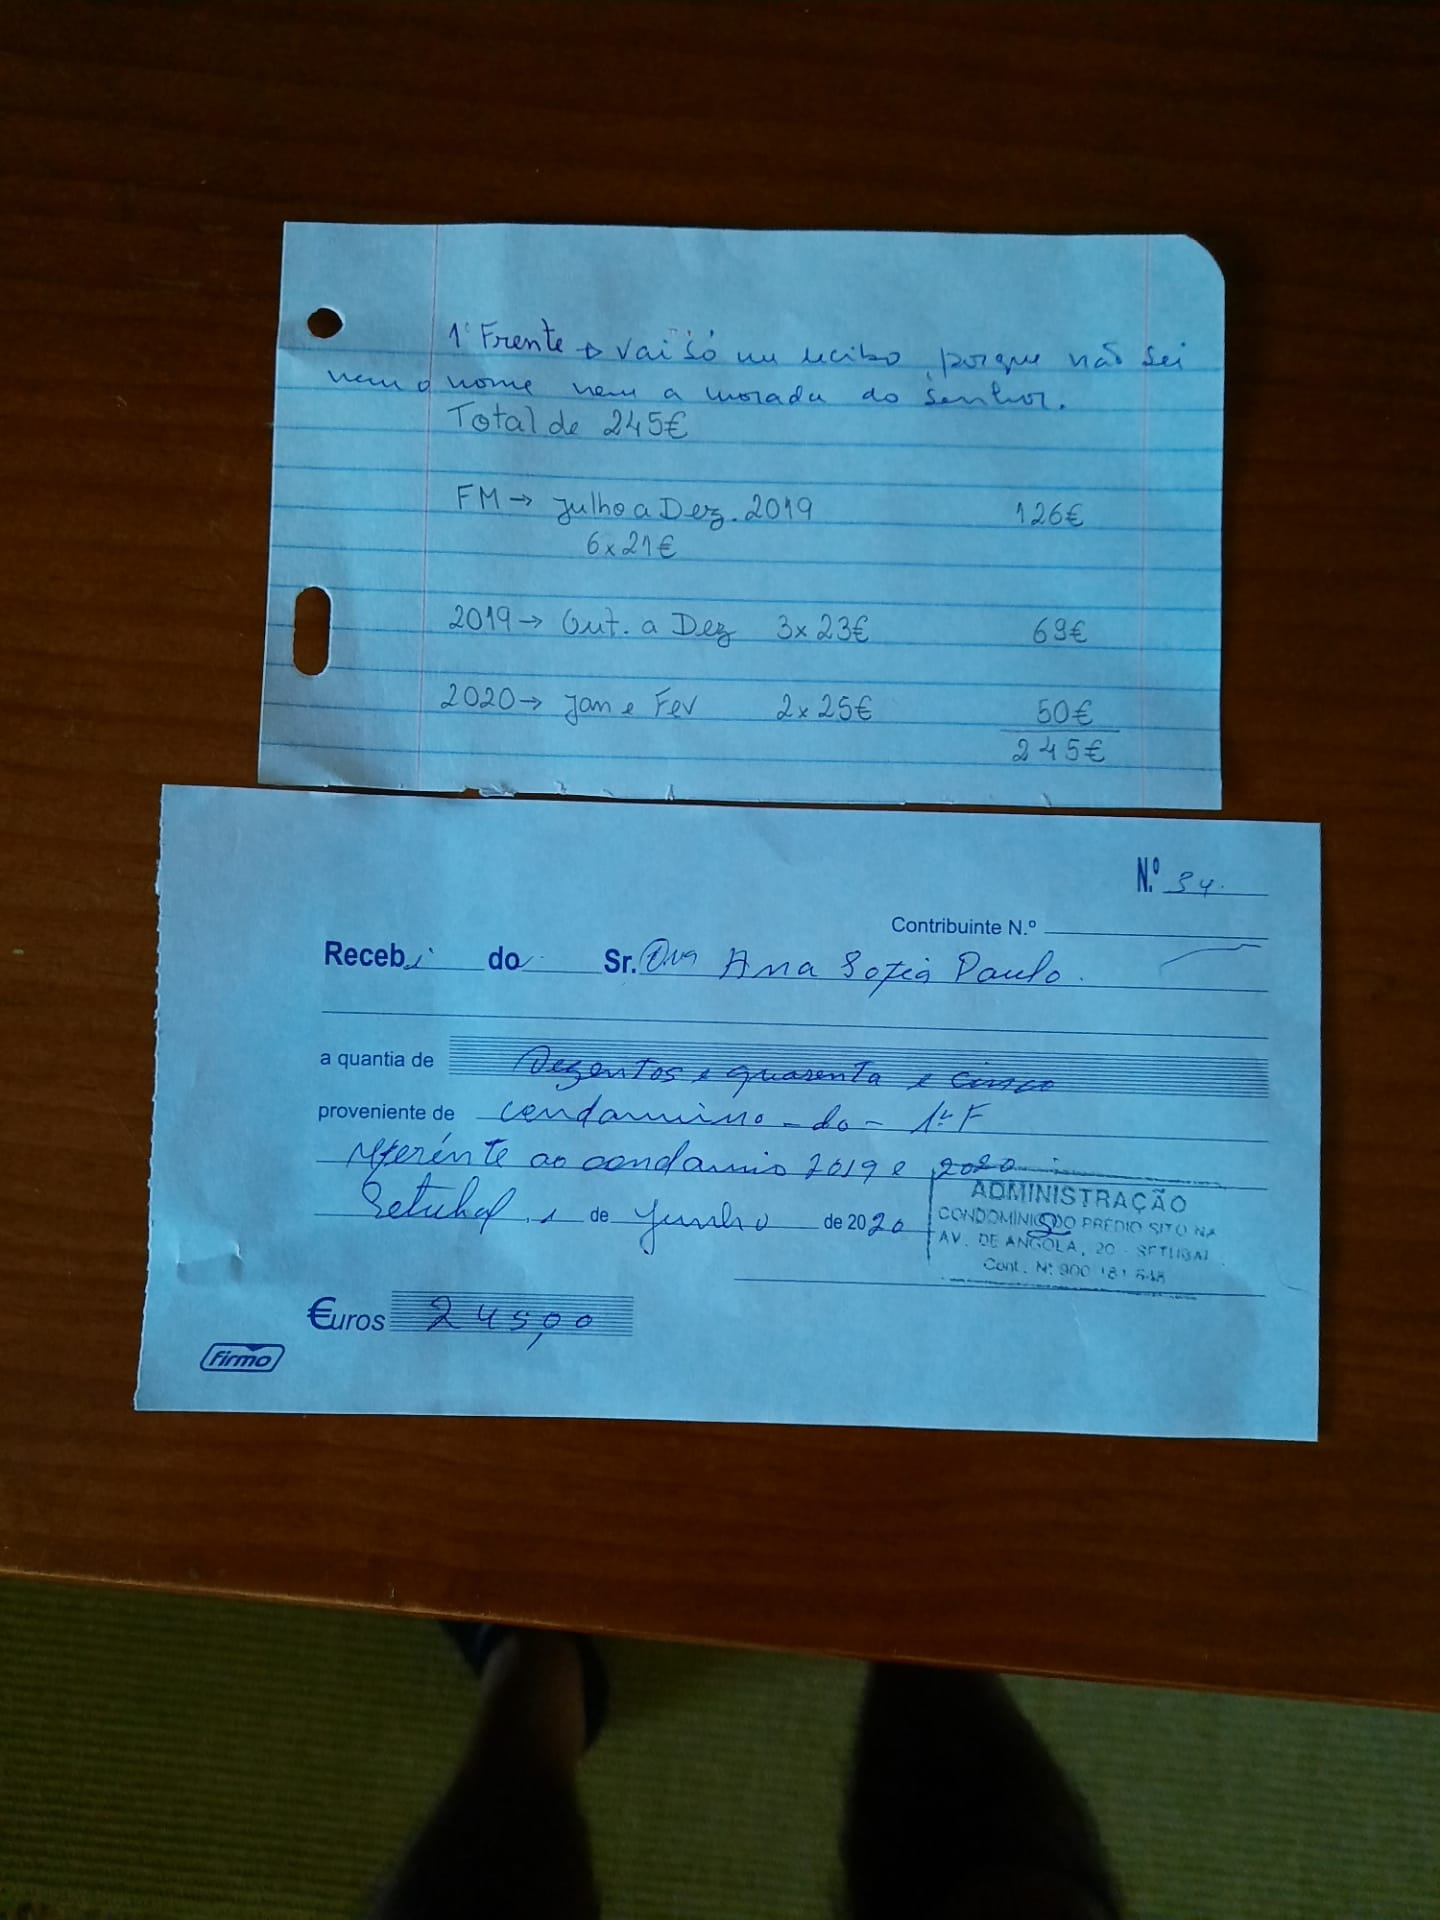 1º Frente → Vai só um recibo, porque não sei
nem o nome nem a morada do senhor.
Total de 245€
FM → Julho a Dez. 2019 126€
6x21€
2019 → Out. a Dez 3x23€ 69€
2020 → Jan e Fev 2x25€ 50€
245€
N.º 34.
Contribuinte N.º
Recebi do Sr. Dra Ana Sofia Paulo.
a quantia de Dezentos e quarenta e cinco
proveniente de condominio - do - 1º F
referente ao condamnio 2019 e 2020
Setubal, 1 de Junho de 2020
ADMINISTRAÇÃO
CONDOMINIO DO PREDIO SITO NA
AV. DE ANGOLA, 20 - SETUBAL
Cont. Nº 900 181 548
€uros 245,00
Firmo